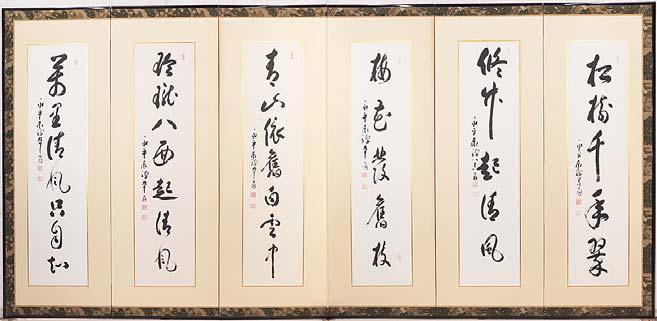 松樹千年翠
脩竹起清風
梅花發舊枝
青山依舊白雲中
玲瓏八面起清風
萬里清風只自知